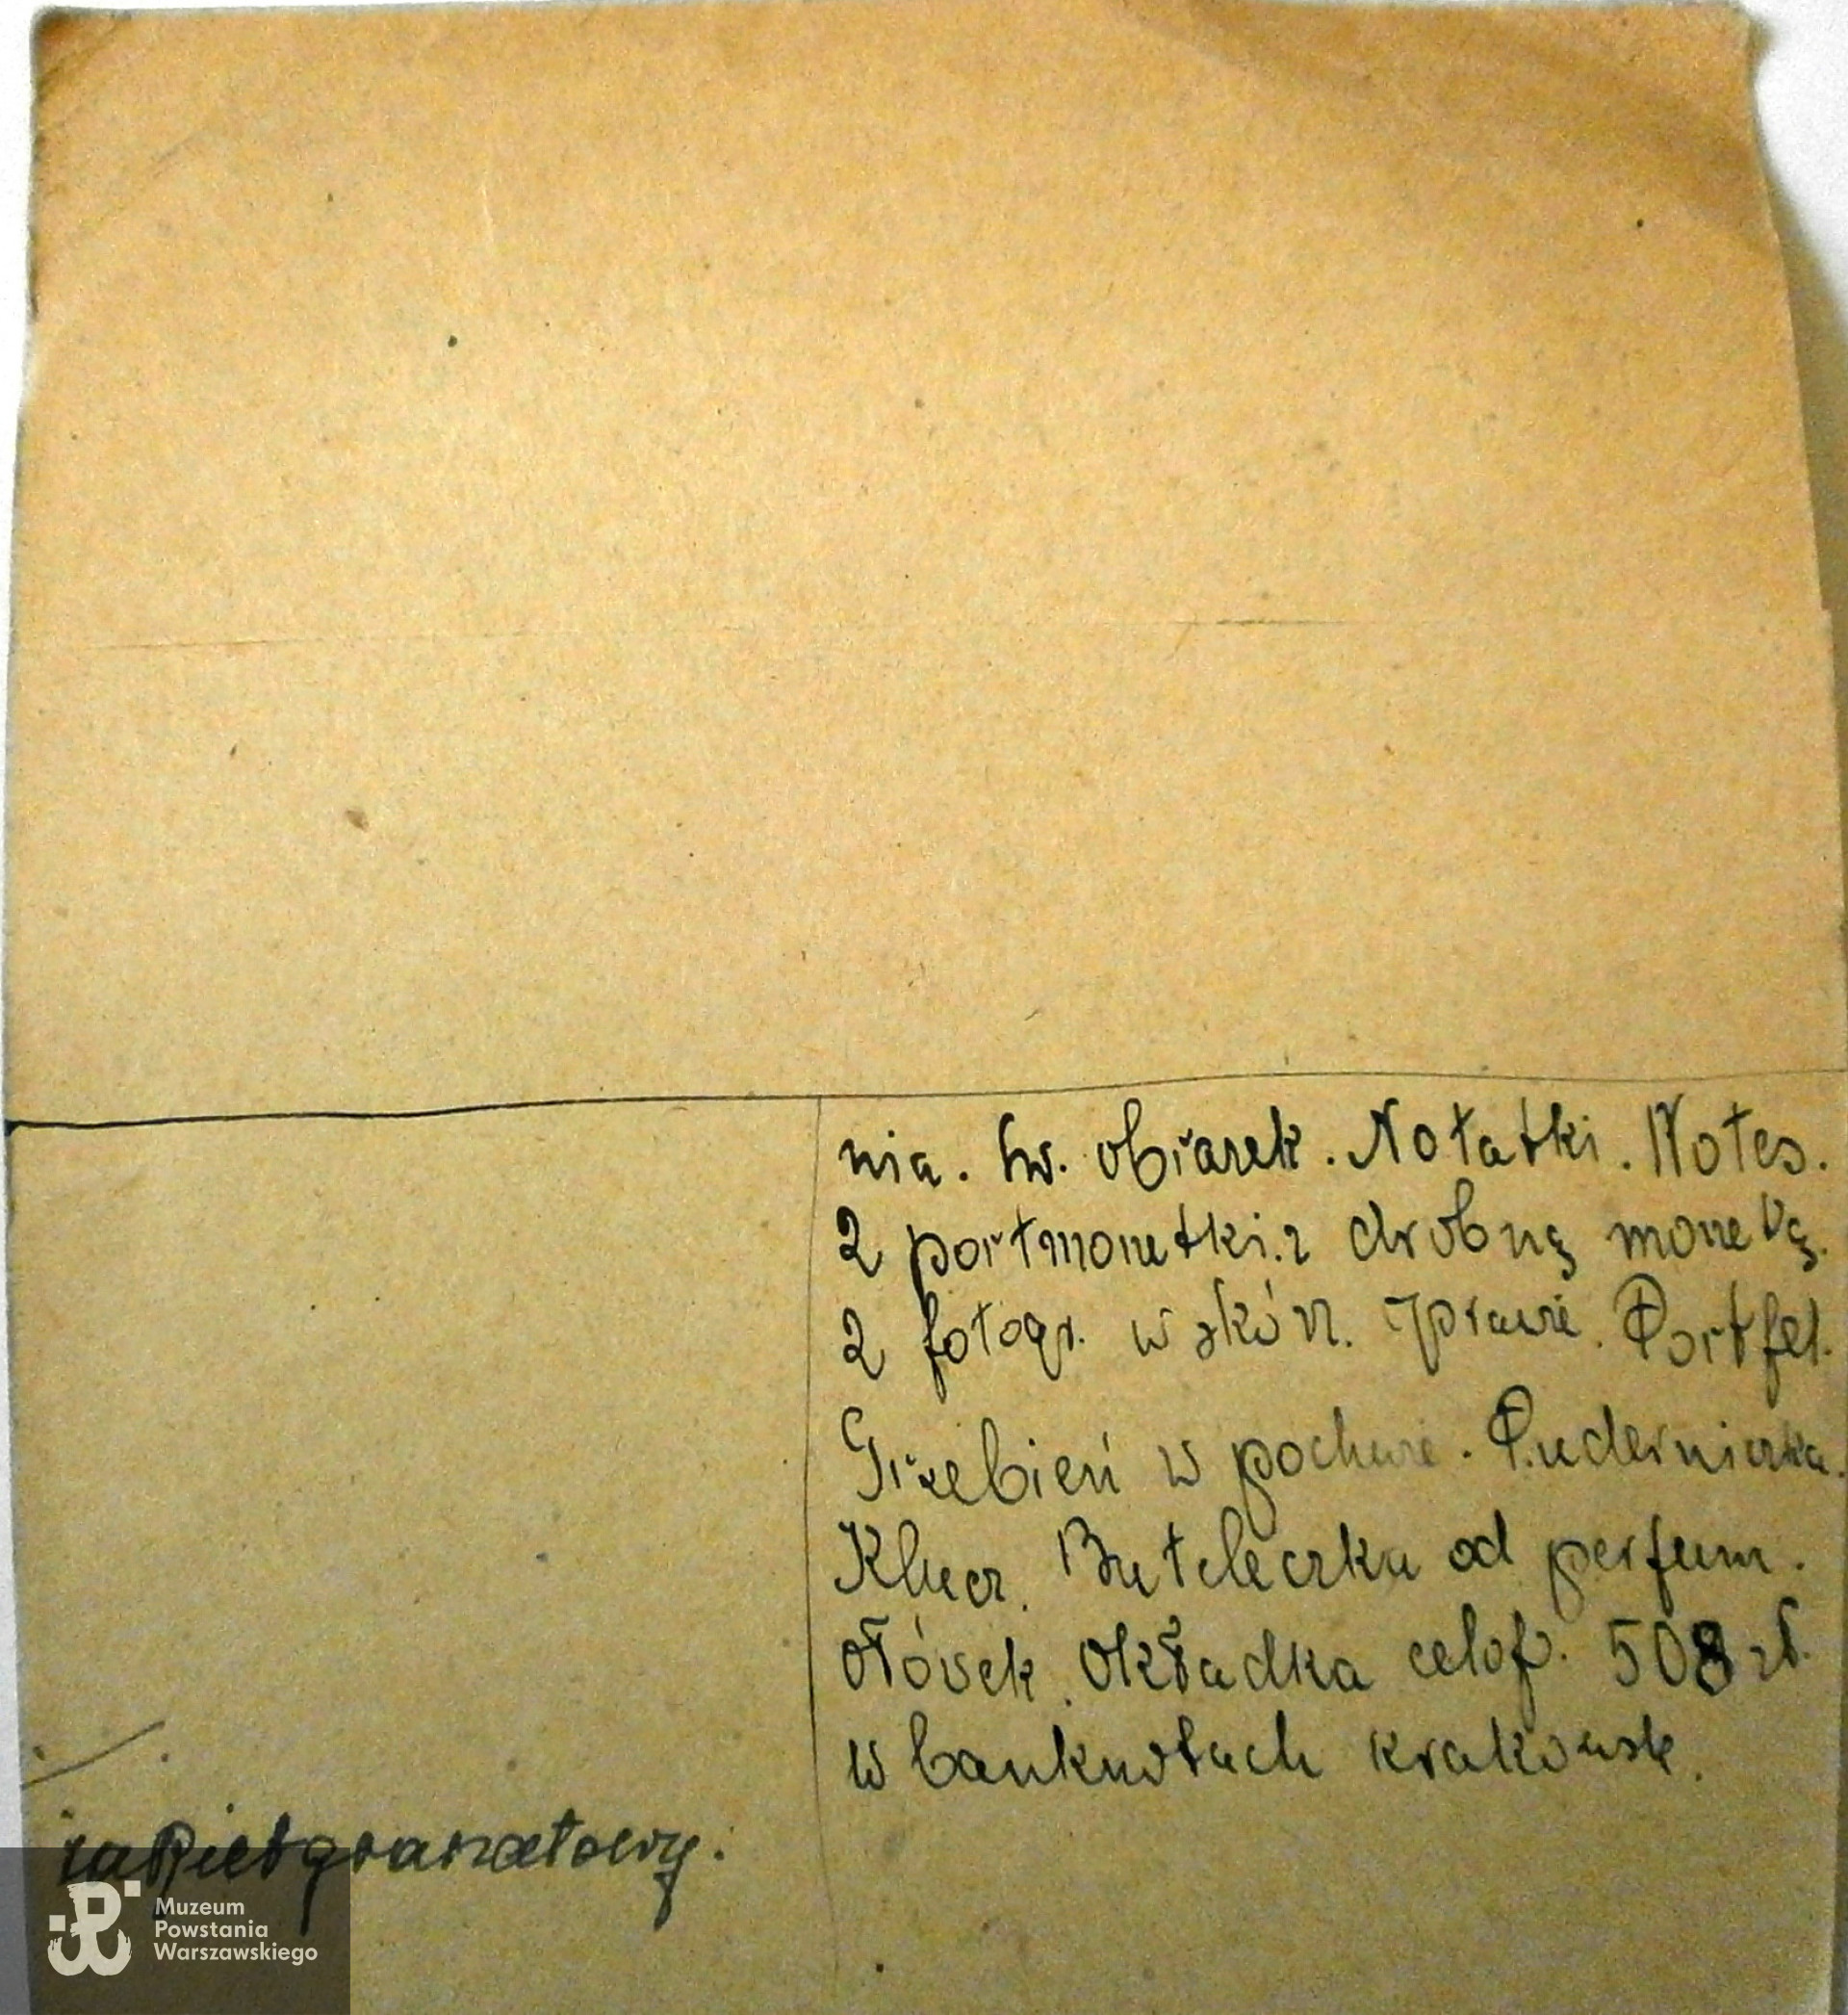 nia. św. obrazek. Notatki. Notes.
2 portmonetki z drobną monetą.
2 fotogr. w skórz. oprawie. Portfel.
Grzebień w pochwie. Puderniczka.
Klucz. Buteleczka od perfum.
Ołówek. Okładka celof. 508 zł.
w banknotach krakowsk.
żakiet granatowy.
Muzeum
Powstania
Warszawskiego